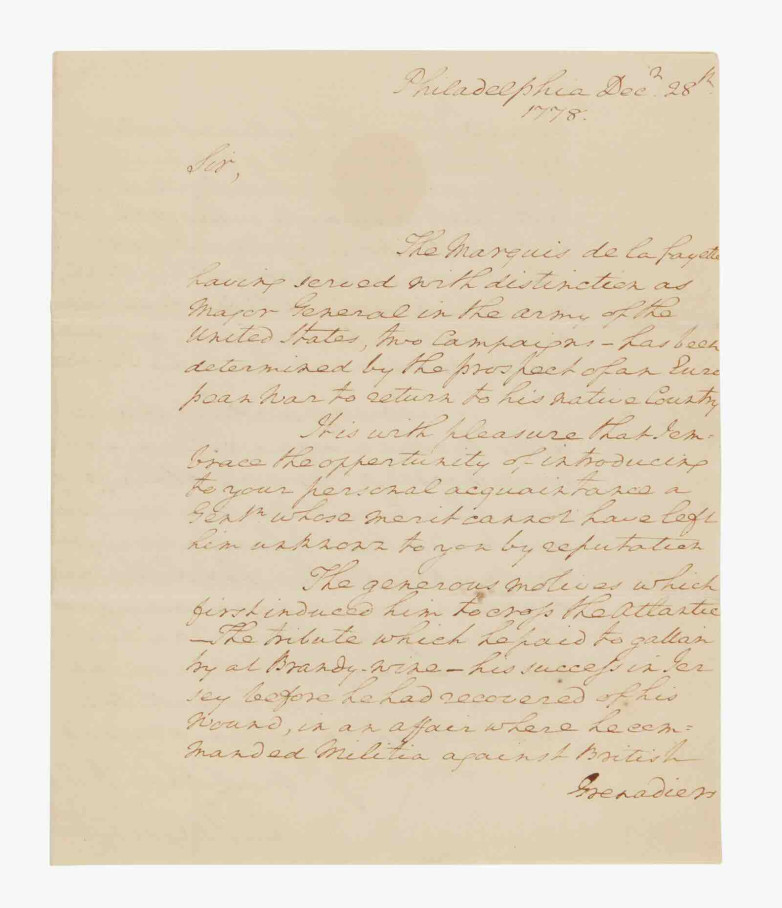 Philadelphia Decr. 28th.
1778.
Sir,
The Marquis de la fayette
having served with distinction as
Major General in the army of the
United States, two Campaigns – has been
determined by the prospect of an Euro
pean War to return to his native Country
It is with pleasure that I em-
brace the opportunity of introducing
to your personal acquaintance a
Gentn whose merit cannot have left
him unknown to you by reputation
The generous motives which
first induced him to cross the Atlantic
– The tribute which he paid to gallan
try at Brandy-wine – his success in Jer
sey before he had recovered of his
Wound, in an affair where he com=
manded Militia against British
Grenadiers